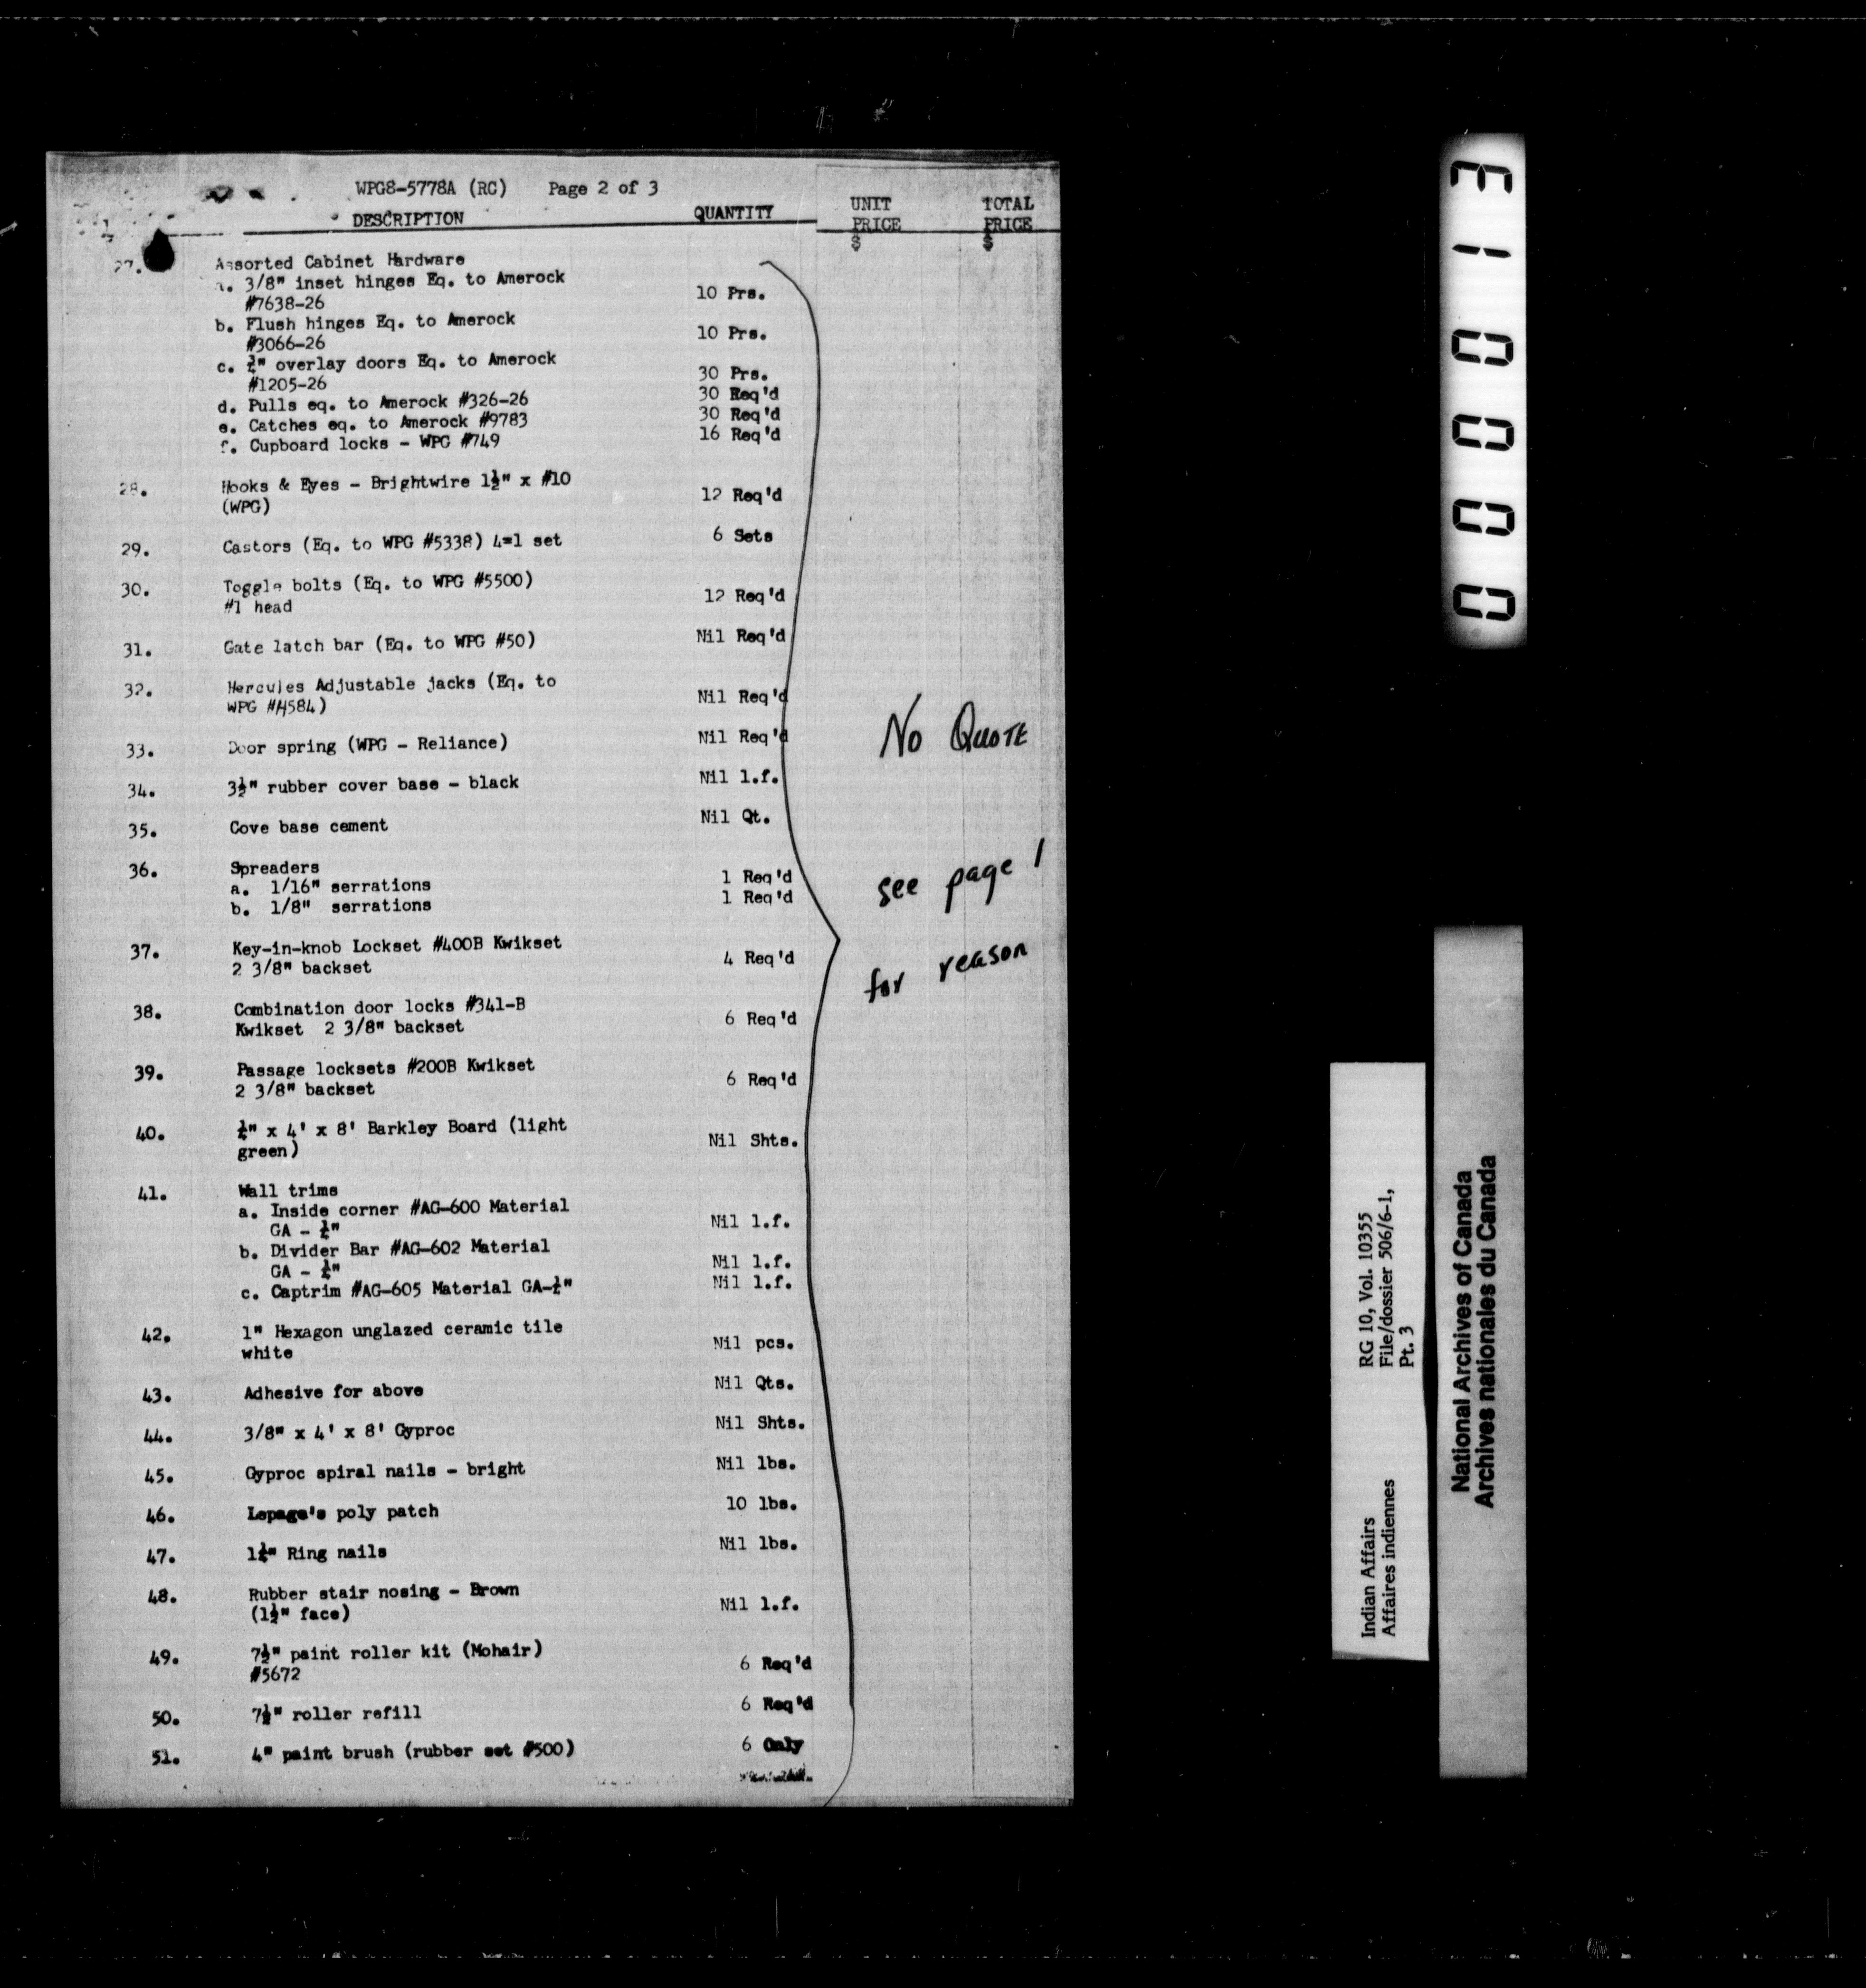 WPG8-5778A (RC) Page 2 of 3
DESCRIPTION QUANTITY UNIT PRICE $ TOTAL PRICE $
27. Assorted Cabinet Hardware
a. 3/8" inset hinges Eq. to Amerock
#7638-26 10 Prs.
b. Flush hinges Eq. to Amerock
#3066-26 10 Prs.
c. ¾" overlay doors Eq. to Amerock
#1205-26 30 Prs.
d. Pulls eq. to Amerock #326-26 30 Req'd
e. Catches eq. to Amerock #9783 30 Req'd
f. Cupboard locks - WPG #749 16 Req'd
28. Hooks & Eyes - Brightwire 1½" x #10
(WPG) 12 Req'd
29. Castors (Eq. to WPG #5338) 4=1 set 6 Sets
30. Toggle bolts (Eq. to WPG #5500)
#1 head 12 Req'd
31. Gate latch bar (Eq. to WPG #50) Nil Req'd
32. Hercules Adjustable jacks (Eq. to
WPG #H584) Nil Req'd
33. Door spring (WPG - Reliance) Nil Req'd
34. 3½" rubber cover base - black Nil l.f.
35. Cove base cement Nil Qt.
36. Spreaders
a. 1/16" serrations 1 Req'd
b. 1/8" serrations 1 Req'd
37. Key-in-knob Lockset #400B Kwikset
2 3/8" backset 4 Req'd
38. Combination door locks #341-B
Kwikset 2 3/8" backset 6 Req'd
39. Passage locksets #200B Kwikset
2 3/8" backset 6 Req'd
40. ¼" x 4' x 8' Barkley Board (light
green) Nil Shts.
41. Wall trims
a. Inside corner #AG-600 Material
GA - ¼" Nil l.f.
b. Divider Bar #AG-602 Material
GA - ¼" Nil l.f.
c. Captrim #AG-605 Material GA-¼" Nil l.f.
42. 1" Hexagon unglazed ceramic tile
white Nil pcs.
43. Adhesive for above Nil Qts.
44. 3/8" x 4' x 8' Gyproc Nil Shts.
45. Gyproc spiral nails - bright Nil lbs.
46. Lepage's poly patch 10 lbs.
47. 1¼" Ring nails Nil lbs.
48. Rubber stair nosing - Brown
(1½" face) Nil l.f.
49. 7½" paint roller kit (Mohair)
#5672 6 Req'd
50. 7½" roller refill 6 Req'd
51. 4" paint brush (rubber set #500) 6 Only
No Quote
see page 1
for reason
000013
Indian Affairs RG 10, Vol. 10355
Affaires indiennes File/dossier 506/6-1,
Pt. 3
National Archives of Canada
Archives nationales du Canada